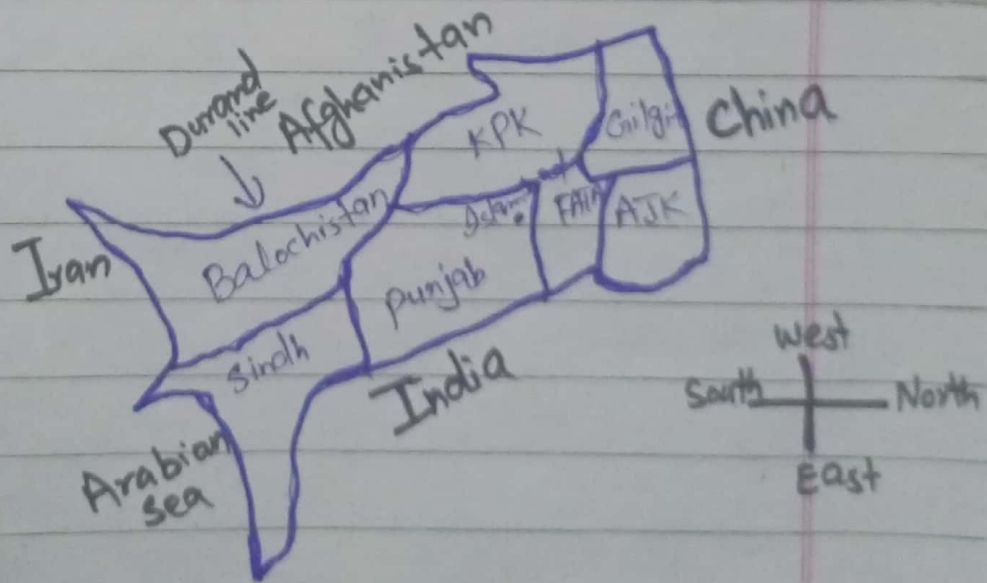 Durrand
line
Afghanistan
KPK
Gilgit
China
Iran
Balochistan
FATA
AJK
Punjab
Sindh
India
Arabian
sea
West
South
North
East